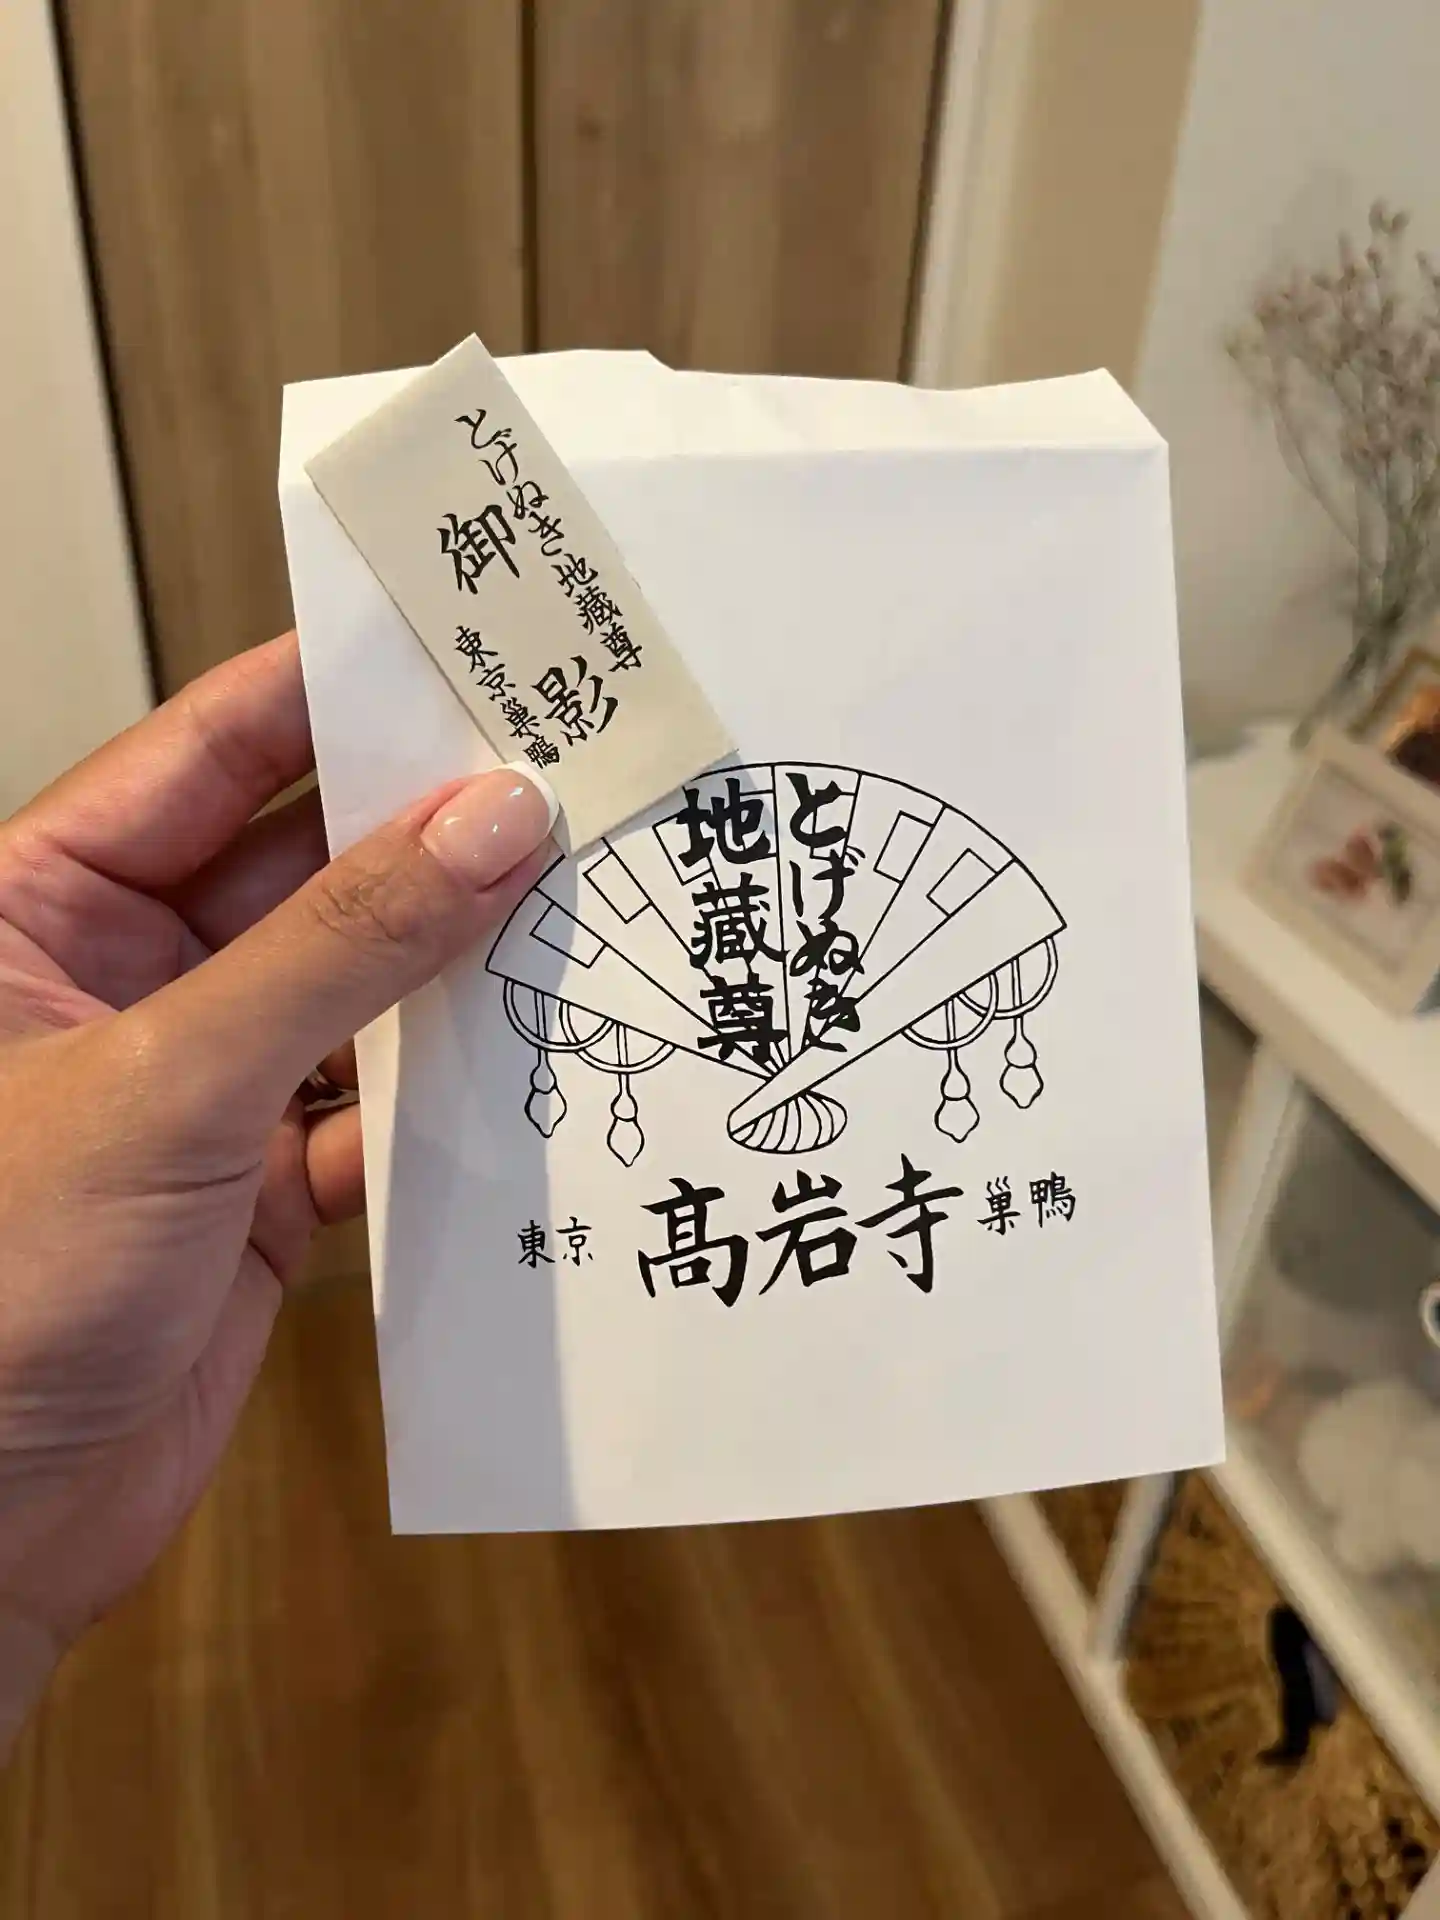 とげぬき地蔵尊
御影
東京巣鴨
とげぬき
地蔵尊
東京 髙岩寺 巣鴨